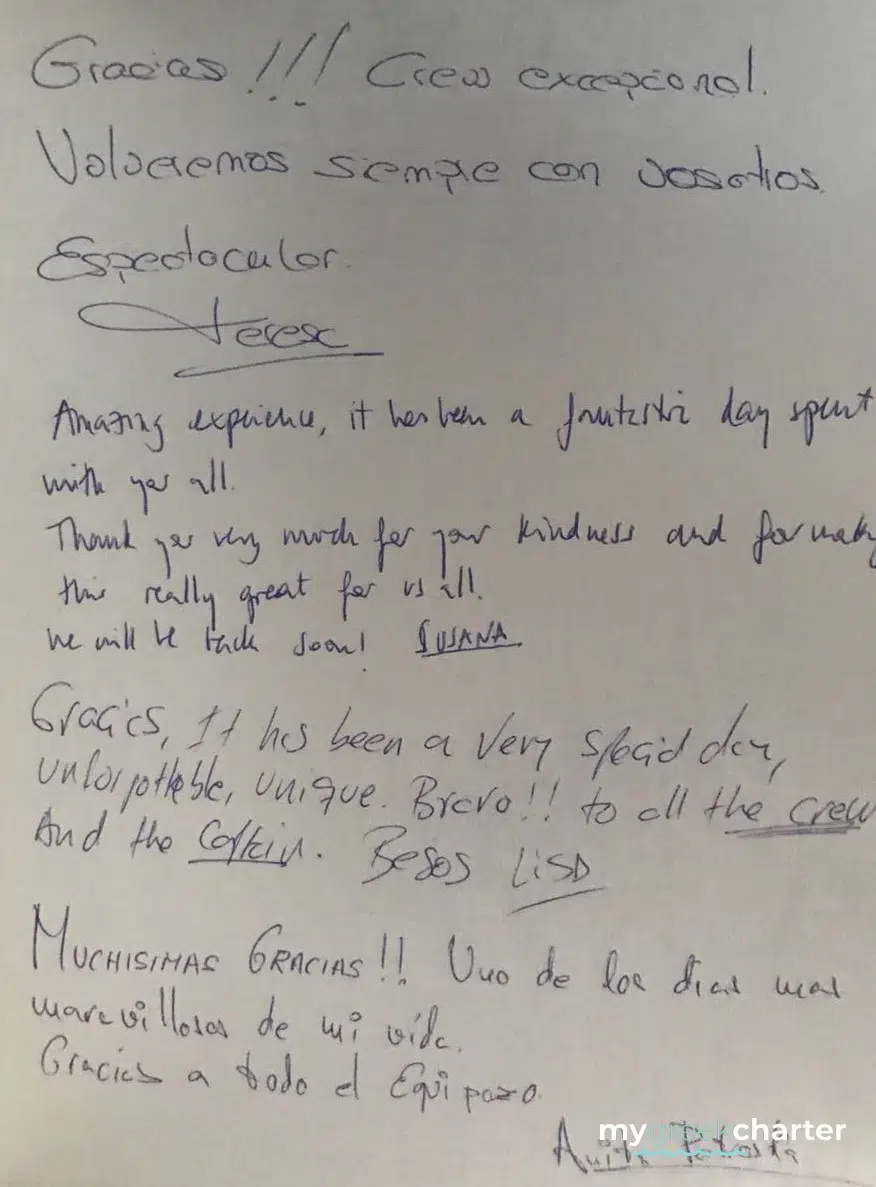 Gracias!!! Crew excepcional.
Volveremos siempre con vosotros.
Espectacular.
Amazing experience, it has been a fantastic day spent
with you all.
Thank you very much for your kindness and for making
this really great for us all.
We will be back soon! SUSANA.
Gracias, It has been a very special day,
unforgottable, unique. Bravo!! to all the crew
And the . Besos LiSA
MUCHISIMAS GRACIAS!! Uno de los dias mas
maravillosos de mi vida.
Gracias a todo el Equipazo.
my greek charter
Anita